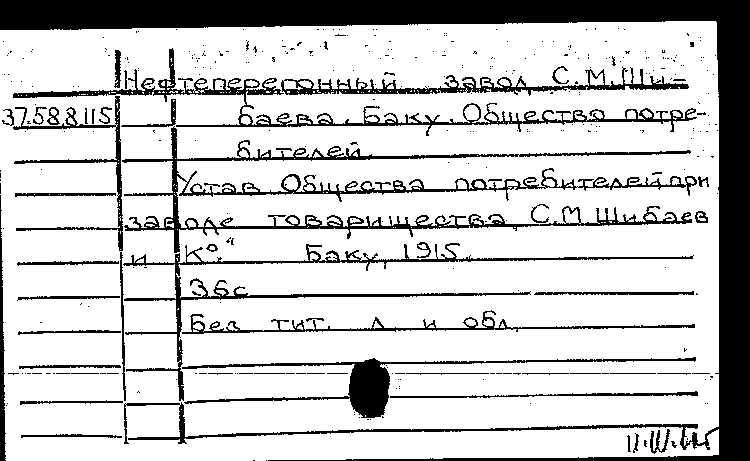 Нефтеперегонный завод С.М.Ши-
37.58.8.115 баева. Баку. Общество потре-
бителей.
Устав Общества потребителей при
заводе товарищества С.М.Шибаев
и К°." Баку, 1915.
36с
Без тит. л и обл.